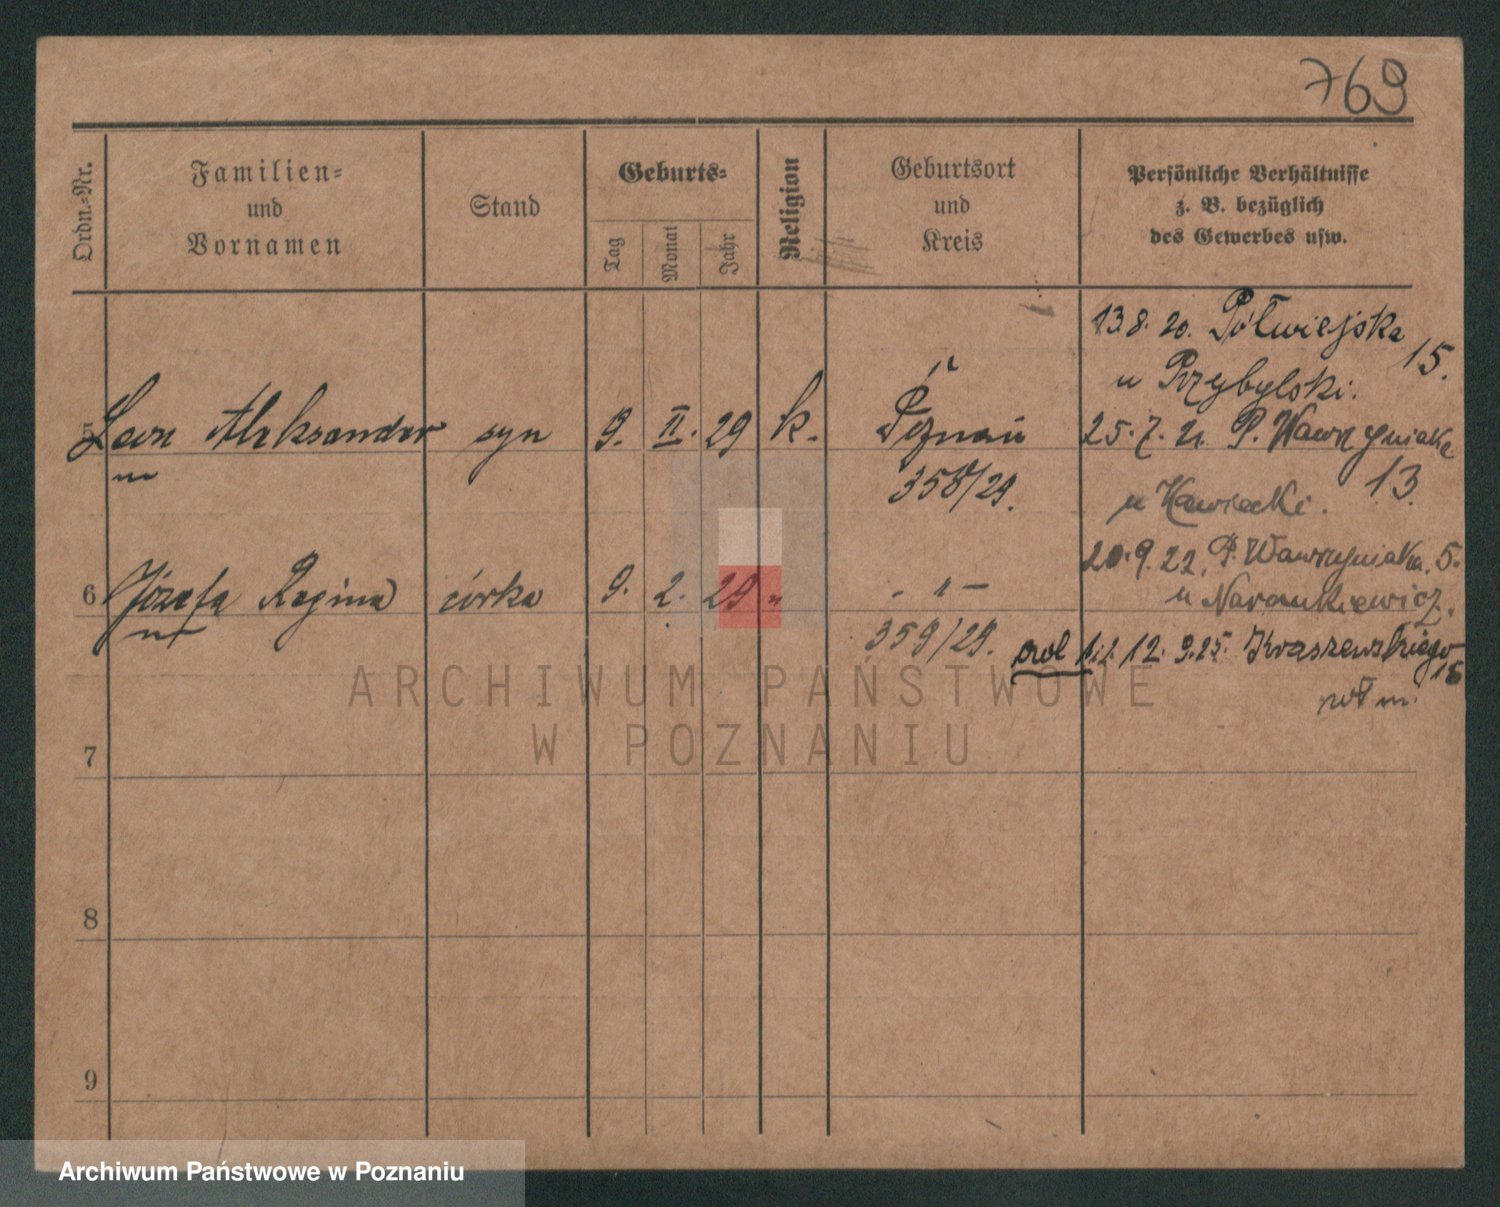 769
Ordn.-Nr.
Familien-
und
Vornamen
Stand
Geburts-
Tag
Monat
Jahr
Religion
Geburtsort
und
Kreis
Persönliche Verhältnisse
z. B. bezüglich
des Gewerbes usw.
13.8.20. Półwiejska
15.
u Przybylski.
5 Leon Aleksander syn 9. II. 29 k. Poznań
25.7.21. P. Wawrzyniaka
13.
358/29.
u Kawiecki.
20.9.22. P. Wawrzyniaka 5.
6 Józefa Regina córka 9. 2. 29 " - " -
u Narankiewicz.
359/29.
12.9.25. Kraszewskiego
15
7
8
9
ARCHIWUM PAŃSTWOWE
W POZNANIU
Archiwum Państwowe w Poznaniu